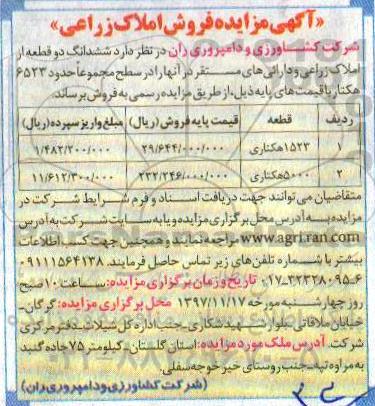 «آگهی مزایده فروش املاک زراعی»
شرکت کشاورزی و دامپروری ران در نظر دارد ششدانگ دو قطعه از
املاک زراعی و دارائی های مستقر در آنها را در سطح مجموعاً حدود ۶۵۲۳
هکتار با قیمت های پایه ذیل، از طریق مزایده رسمی به فروش برساند.
ردیف قطعه قیمت پایه فروش (ریال) مبلغ واریز سپرده (ریال)
۱ ۱۵۲۳ هکتاری ۲۹/۶۴۴/۰۰۰/۰۰۰ ۱/۴۸۲/۲۰۰/۰۰۰
۲ ۵۰۰۰ هکتاری ۲۳۲/۲۴۶/۰۰۰/۰۰۰ ۱۱/۶۱۲/۳۰۰/۰۰۰
متقاضیان می توانند جهت دریافت اسناد و فرم شرایط شرکت در
مزایده به آدرس محل برگزاری مزایده و یا به سایت شرکت به آدرس
www.agri.ran.com مراجعه نمایند و همچنین جهت کسب اطلاعات
بیشتر با شماره تلفن های زیر تماس حاصل فرمایند. ۰۹۱۱۱۵۶۴۱۳۸
۶-۰۱۷-۳۲۳۲۸۰۹۵ تاریخ و زمان برگزاری مزایده: ساعت ۱۰ صبح
روز چهارشنبه مورخه ۱۳۹۷/۱۱/۱۷ محل برگزاری مزایده: گرگان-
خیابان ملاقاتی- بلوار شهید شکاری- جنب اداره کل شیلات- دفتر مرکزی
شرکت. آدرس ملک مورد مزایده: استان گلستان- کیلومتر ۷۵ جاده گنبد
به مراوه تپه- جنب روستای خیرخوجه سفلی.
(شرکت کشاورزی و دامپروری ران)